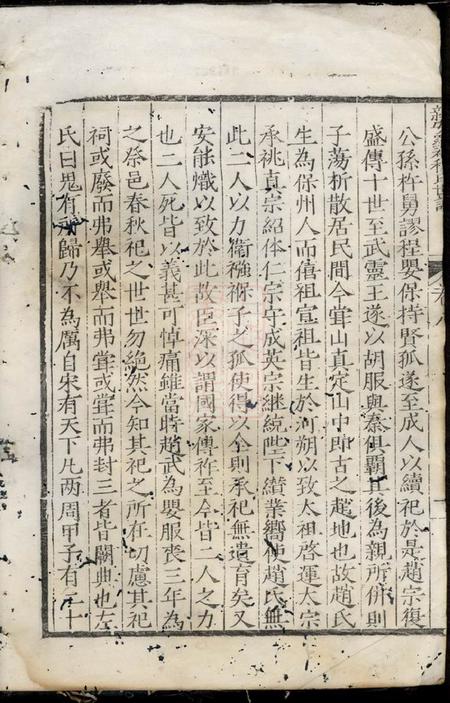 公孫杵臼謬程嬰保持賢孤遂至成人以續祀於是趙宗復
盛傳十世至武靈王遂以胡服與秦俱霸其後為秦所併則
子蕩析散居民間今常山真定山中即古之趙地也故趙氏
生為保州人而僖祖宣祖皆生於河朔以致太祖啓運太宗
承祧真宗紹休仁宗守成英宗継統陛下纘業嚮使趙氏無
此二人以力衛襁褓孑之孤使得以全則承祀無遺育矣又
安能熾以致於此故臣深以謂國家傳祚至今皆二人之力
也二人死皆以義甚可悼痛雖當時趙武為嬰服丧三年為
之祭邑春秋祀之世世勿絶然今不知其祀之所在切慮其祀
祠或廢而弗舉或舉而弗甞或甞而弗封三者皆闕典也左
氏曰鬼有所歸乃不為厲自宋有天下凡两周甲子有二十